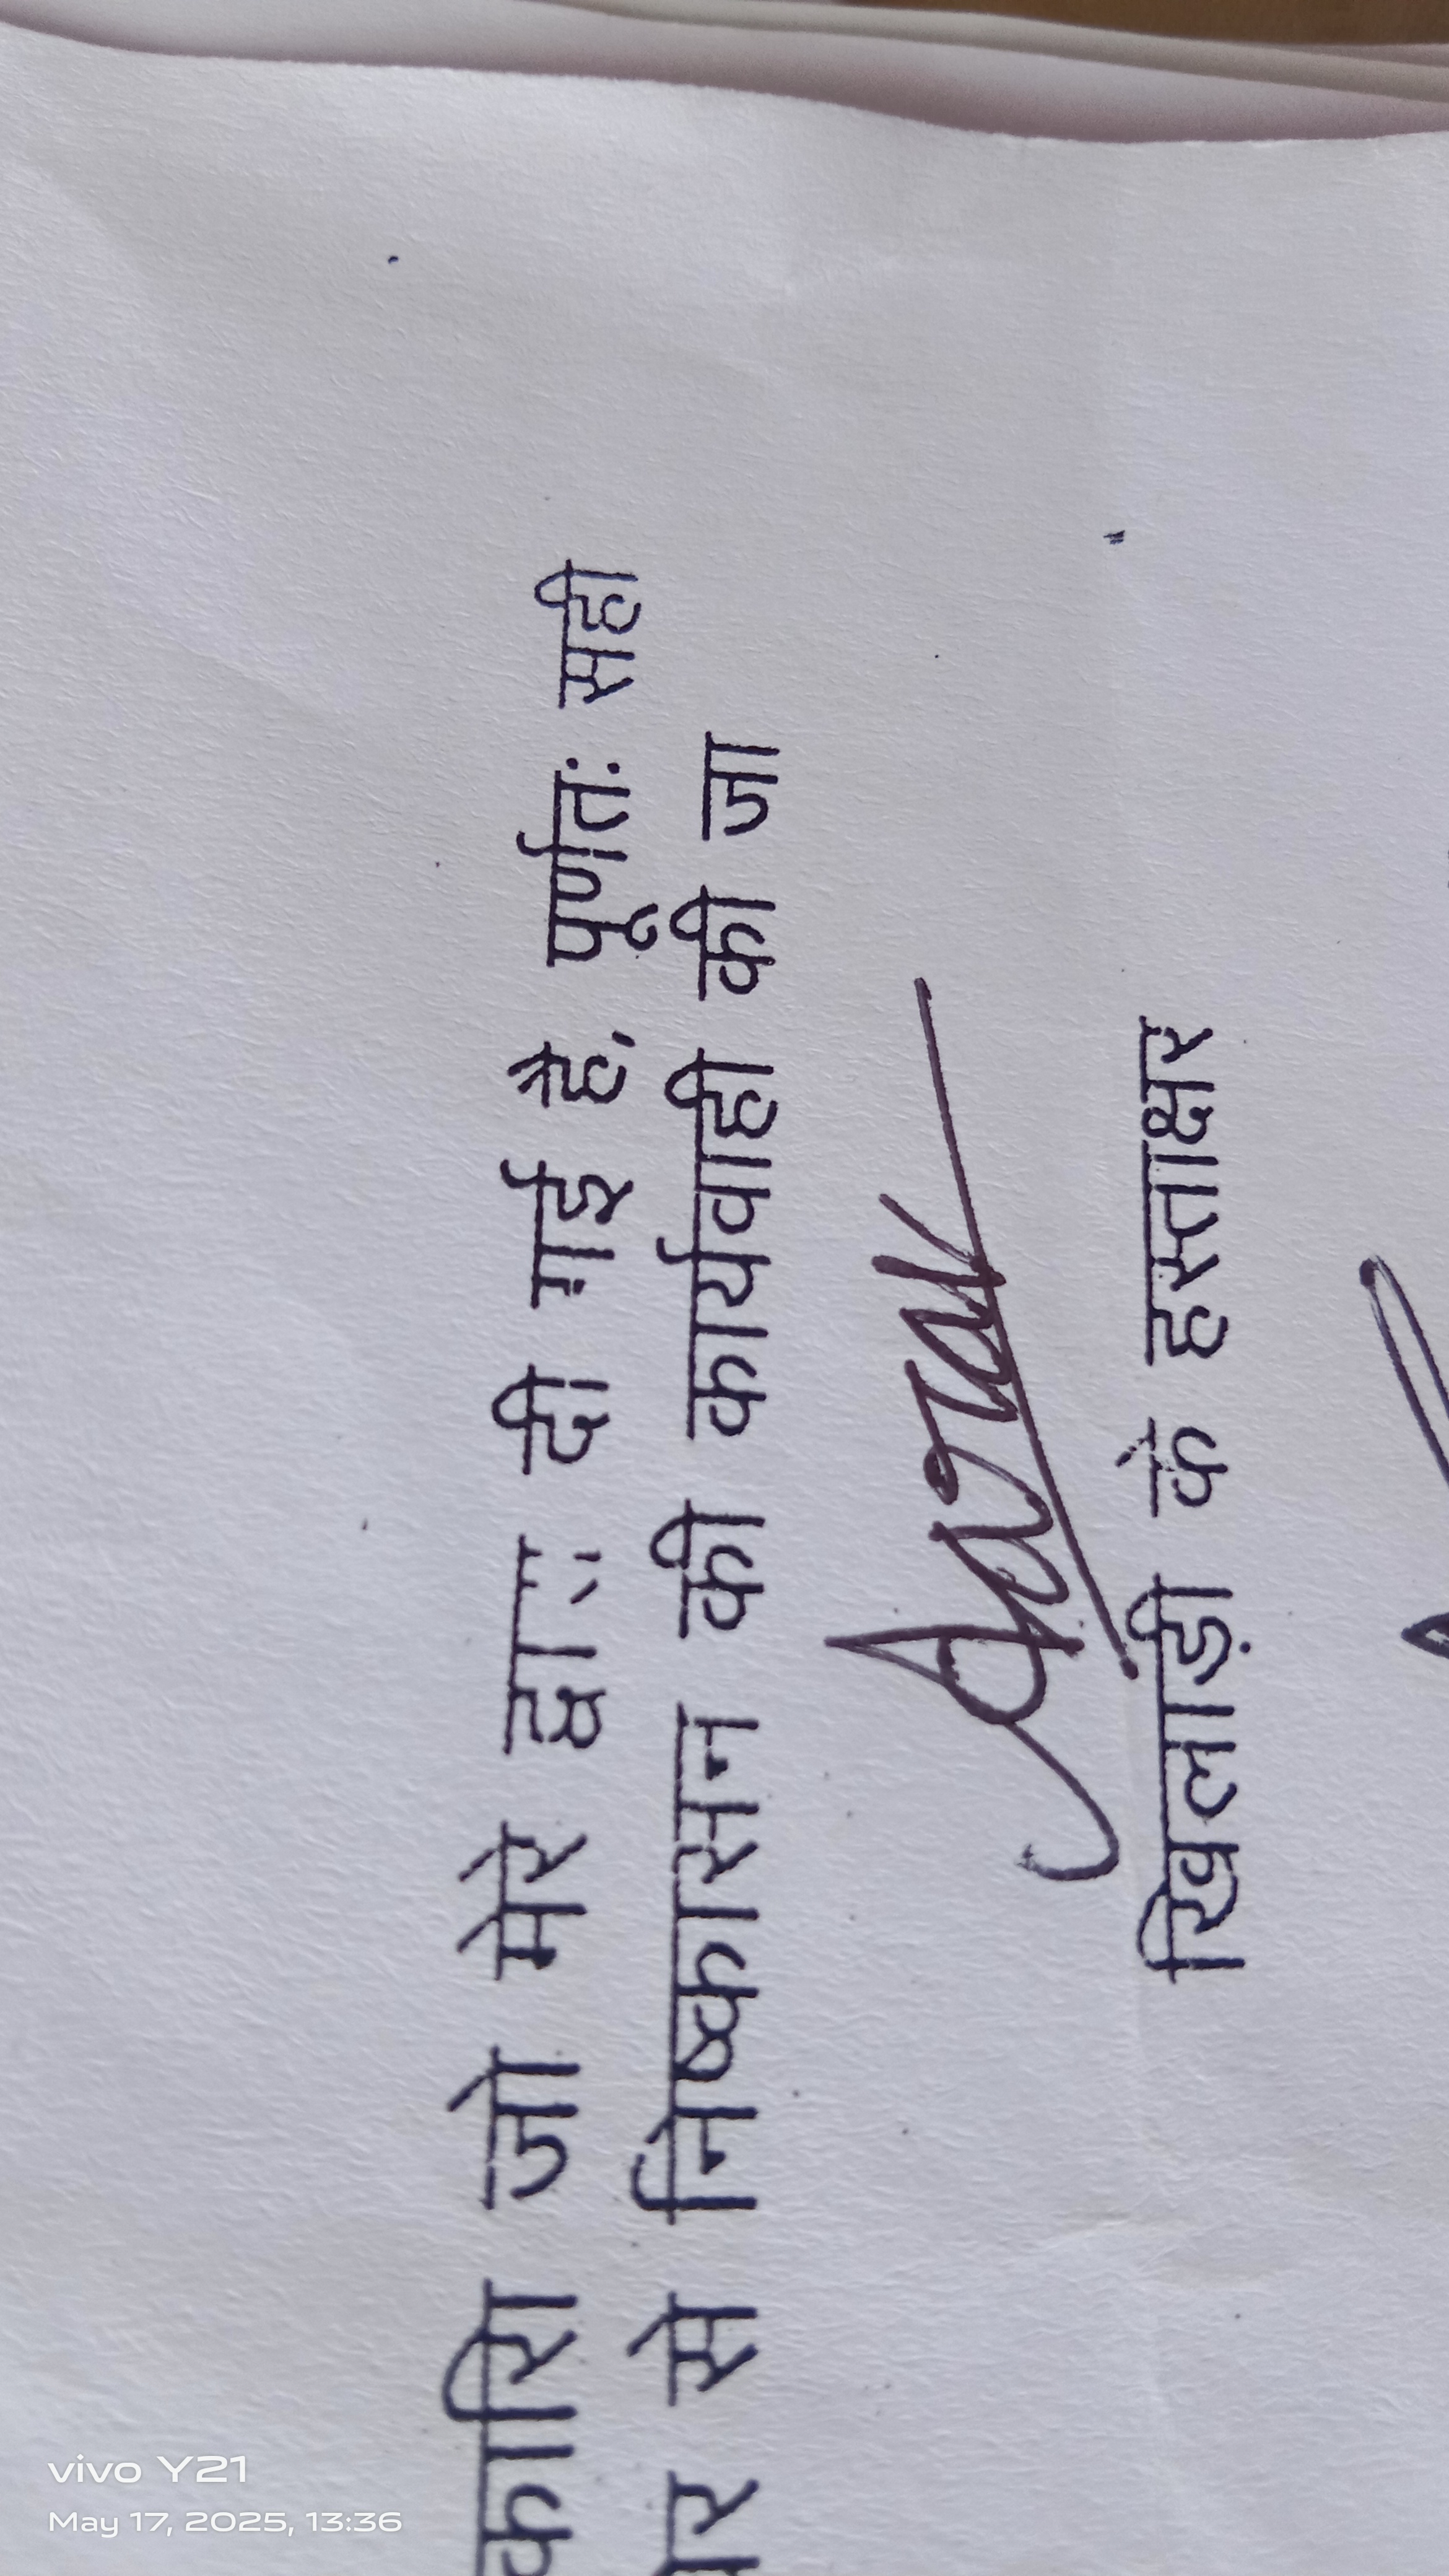 जो मेरे द्वारा दी गई है, पूर्णतः सही
से निष्कासन की कार्यवाही की जा
खिलाड़ी के हस्ताक्षर
vivo Y21
May 17, 2025, 13:36